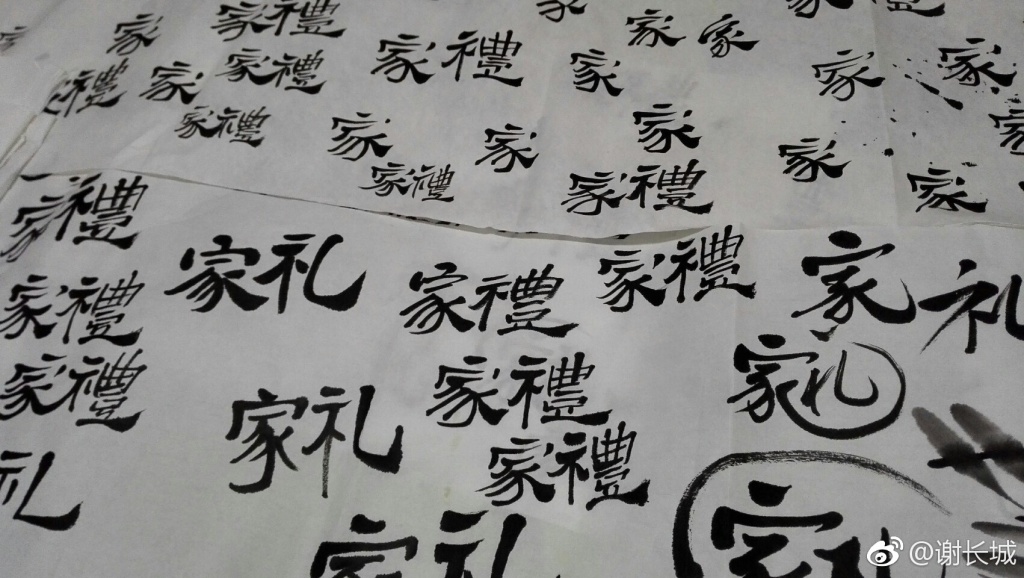 家禮
家
家
家
家禮
家禮
家
家
家
家
禮
家
家禮
家
家
家
家禮
家
家
家禮
家禮
家
家禮
家礼
家禮
家禮
家礼
家禮
家禮
家礼
家禮
家礼
家禮
礼
家礼
家
@谢长城